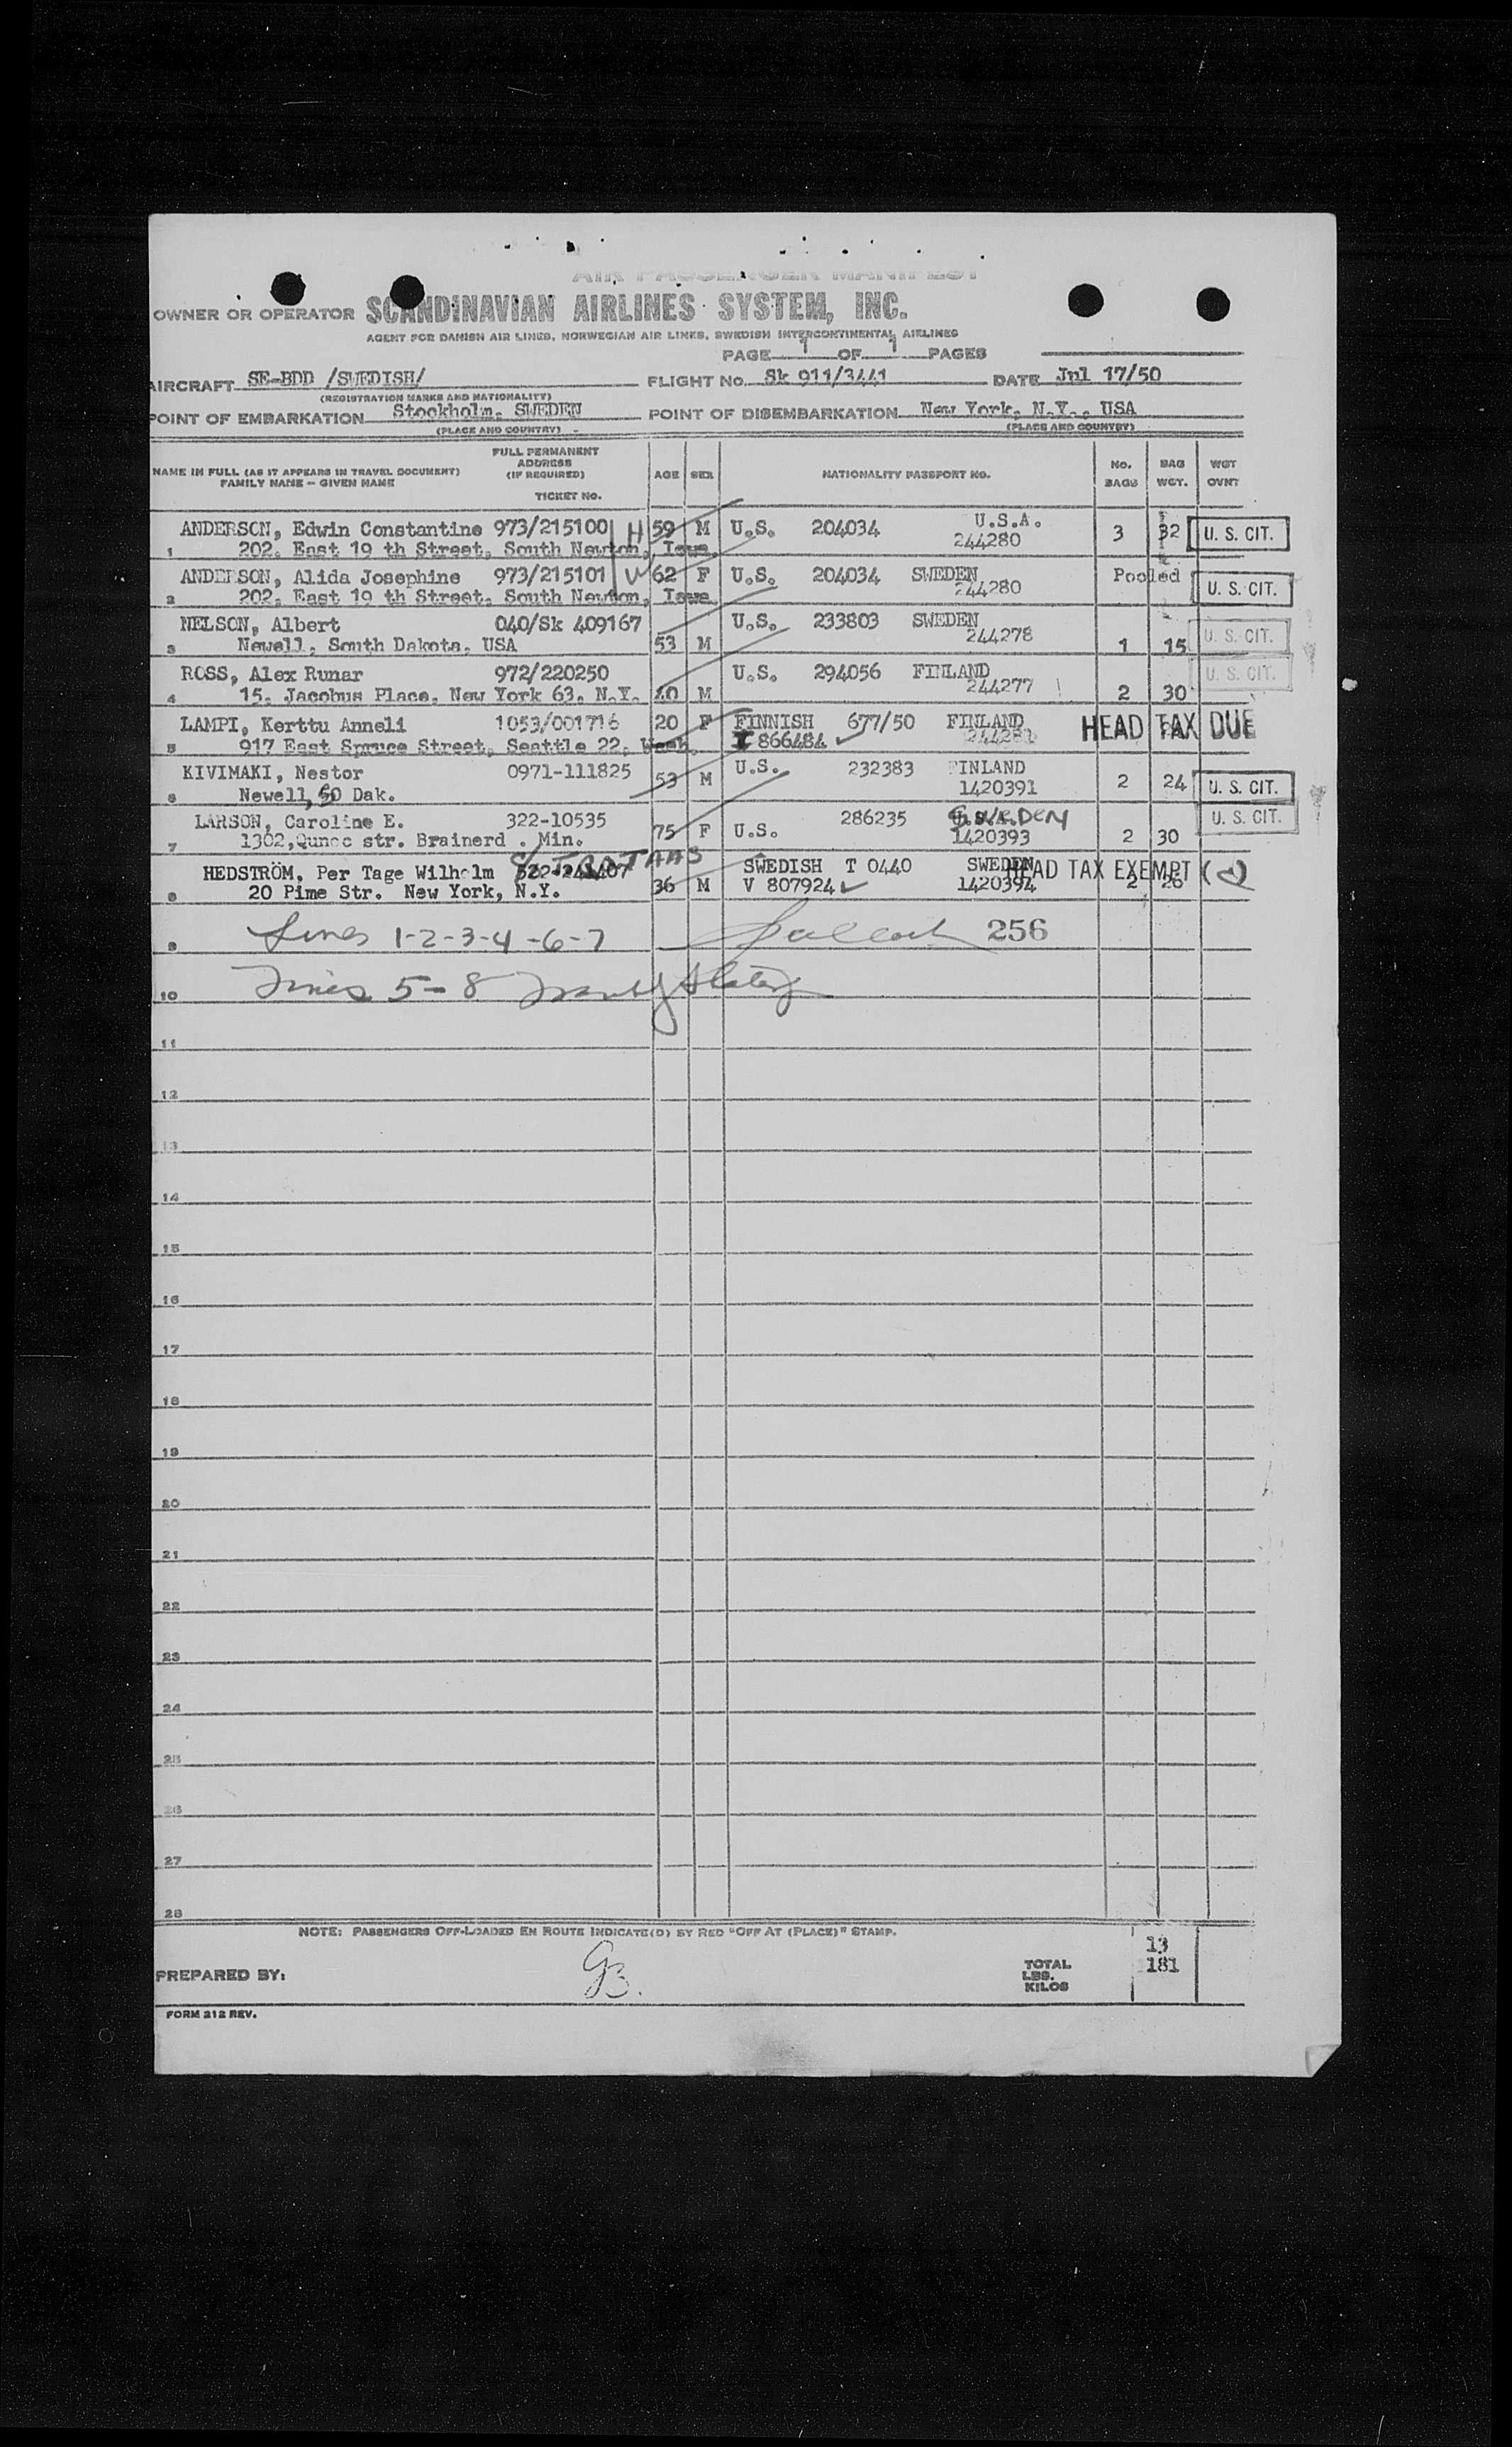 AIR PASSENGER MANIFEST
OWNER OR OPERATOR SCANDINAVIAN AIRLINES SYSTEM, INC.
AGENT FOR DANISH AIR LINES, NORWEGIAN AIR LINES, SWEDISH INTERCONTINENTAL AIRLINES
PAGE 1 OF 1 PAGES
AIRCRAFT SE-BDD /SWEDISH/ FLIGHT No. Sk 911/3441 DATE Jul 17/50
(REGISTRATION MARKS AND NATIONALITY)
POINT OF EMBARKATION Stockholm, SWEDEN POINT OF DISEMBARKATION New York, N.Y., USA
(PLACE AND COUNTRY) (PLACE AND COUNTRY)
NAME IN FULL (AS IT APPEARS IN TRAVEL DOCUMENT) FAMILY NAME - GIVEN NAME
FULL PERMANENT ADDRESS (IF REQUIRED) TICKET NO.
AGE SEX NATIONALITY PASSPORT NO. No. BAGS BAG WGT. WGT OVNT
ANDERSON, Edwin Constantine 973/215100 H 59 M U.S. 204034 U.S.A. 244280 3 32 U. S. CIT.
1 202, East 19 th Street, South Newton, Iowa
ANDERSON, Alida Josephine 973/215101 W 62 F U.S. 204034 SWEDEN 244280 Pooled U. S. CIT.
2 202, East 19 th Street, South Newton, Iowa
NELSON, Albert 040/Sk 409167 U.S. 233803 SWEDEN 244278 U. S. CIT.
3 Newell, South Dakota, USA 53 M 1 15
ROSS, Alex Runar 972/220250 U.S. 294056 FINLAND 244277 U. S. CIT.
4 15, Jacobus Place, New York 63, N.Y. 40 M 2 30
LAMPI, Kerttu Anneli 1053/001716 20 F FINNISH 677/50 FINLAND 244281 HEAD TAX DUE
5 917 East Spruce Street, Seattle 22, Wash. I 866484
KIVIMAKI, Nestor 0971-111825 53 M U.S. 232383 FINLAND 1420391 2 24 U. S. CIT.
6 Newell, SO Dak.
LARSON, Caroline E. 322-10535 75 F U.S. 286235 SWEDEN 1420393 2 30 U. S. CIT.
7 1302, str. Brainerd . Min.
HEDSTRÖM, Per Tage Wilhelm 322-241407 36 M SWEDISH T 0440 SWEDEN HEAD TAX EXEMPT
8 20 Pime Str. New York, N.Y. V 807924 1420394 2 26
9 Lines 1-2-3-4-6-7 256
10 Lines 5-8
11
12
13
14
15
16
17
18
19
20
21
22
23
24
25
26
27
28
NOTE: PASSENGERS OFF-LOADED EN ROUTE INDICATE(D) BY RED "OFF AT (PLACE)" STAMP.
PREPARED BY: GB. TOTAL LBS. KILOS 13 181
FORM 212 REV.